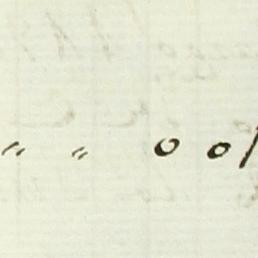 " " 0 0